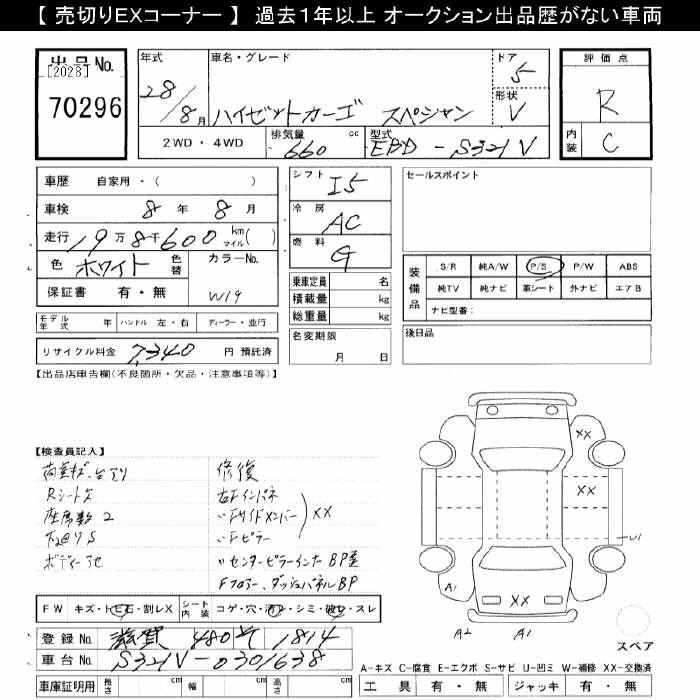 【 売切りEXコーナー 】 過去1年以上 オークション出品歴がない車両
出品No.
[2028]
70296
年式
28/8月
車名・グレード
ハイゼットカーゴ スペシャル
ドア
5
形状
V
評価点
R
内装
C
2WD・4WD
排気量
660 cc
型式
EBD-S321V
車歴 自家用・( )
車検 8年 8月
走行 19万8千600 km マイル( )
色 ホワイト 色替
カラーNo.
W19
保証書 有・無
シフト
I5
冷房
AC
燃料
G
乗車定員 名
積載量 kg
総重量 kg
名変期限
月 日
セールスポイント
装備品
S/R 純A/W P/S P/W ABS
純TV 純ナビ 革シート 外ナビ エアB
ナビ型番:
後日品
モデル年式 年 ハンドル 左・右 ディーラー・並行
リサイクル料金 7,340 円 預託済
【出品店申告欄(不良箇所・欠品・注意事項等)】
【検査員記入】
Rシート欠
座席数 2
修復
右Fインパネ
〃Fサイドメンバー XX
〃Fピラー
〃センターピラーインナーBP歪
Fフロアー、ダッシュパネルBP
FW キズ・トビ石・割レX シート内装 コゲ・穴・汚レ・シミ・破レ・スレ
登録No. 滋賀 480 そ 1814
車台No. S321V-0301638
車庫証明用 長さ cm 幅 cm 高さ cm
XX
XX
U1
A1
XX
A2
A1
スペア
A-キズ C-腐食 E-エクボ S-サビ U-凹ミ W-補修 XX-交換済
工具 有・無 ジャッキ 有・無